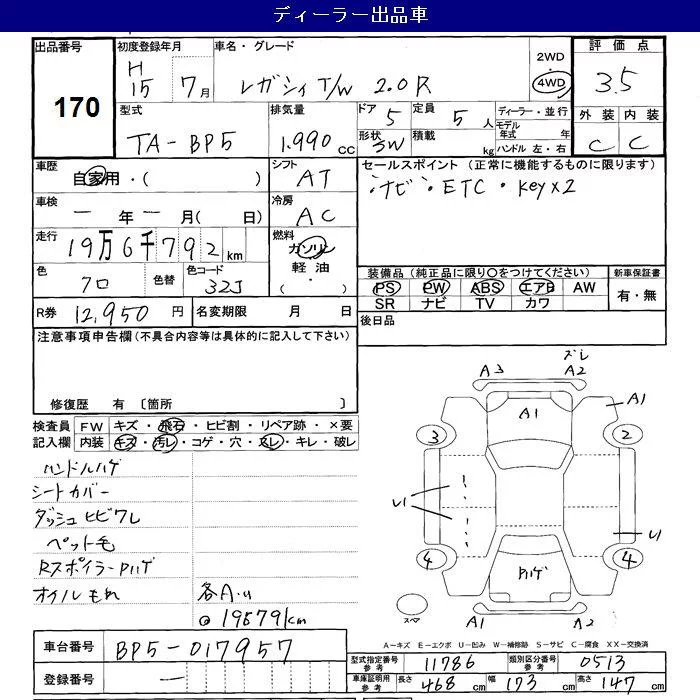 ディーラー出品車
出品番号 初度登録年月 車名・グレード 2WD・4WD 評価点
170 H15 7月 レガシィT/W 2.0R 3.5
型式 排気量 ドア 5 定員 5人 ディーラー・並行 外装 内装
TA-BP5 1.990cc 形状 3W 積載 kg モデル年式 年 C C
ハンドル 左・右
車歴 自家用・( ) シフト AT セールスポイント(正常に機能するものに限ります)
車検 ー年ー月(日) 冷房 AC ナビ・ETC・Key×2
走行 19万6千792km 燃料 ガソリン・軽油・( )
色 クロ 色替 色コード 32J
装備品(純正品に限り○をつけてください) 新車保証書
PS PW ABS エアB AW 有・無
SR ナビ TV カワ
R券 12,950円 名変期限 月 日 後日品
注意事項申告欄(不具合内容等は具体的に記入して下さい)
修復歴 有〔箇所 〕
検査員記入欄 FW キズ・飛石・ヒビ割・リペア跡・×要
内装 キズ・汚レ・コゲ・穴・スレ・キレ・破レ
ハンドルハゲ
シートカバー
ダッシュヒビワレ
ペット毛
RスポイラーPハゲ
オイルもれ 各A.U
@196791km
ズレ
A3 A2
A1 A1
3 2
U1 U1
4 4
Pハゲ
スペア A1 A2
A-キズ E-エクボ U-凹み W-補修跡 S-サビ C-腐食 XX-交換済
車台番号 BP5-017957 型式指定番号 参考 11786 類別区分番号 参考 0513
登録番号 ー 車庫証明用 参考 長さ 468cm 幅 173cm 高さ 147cm